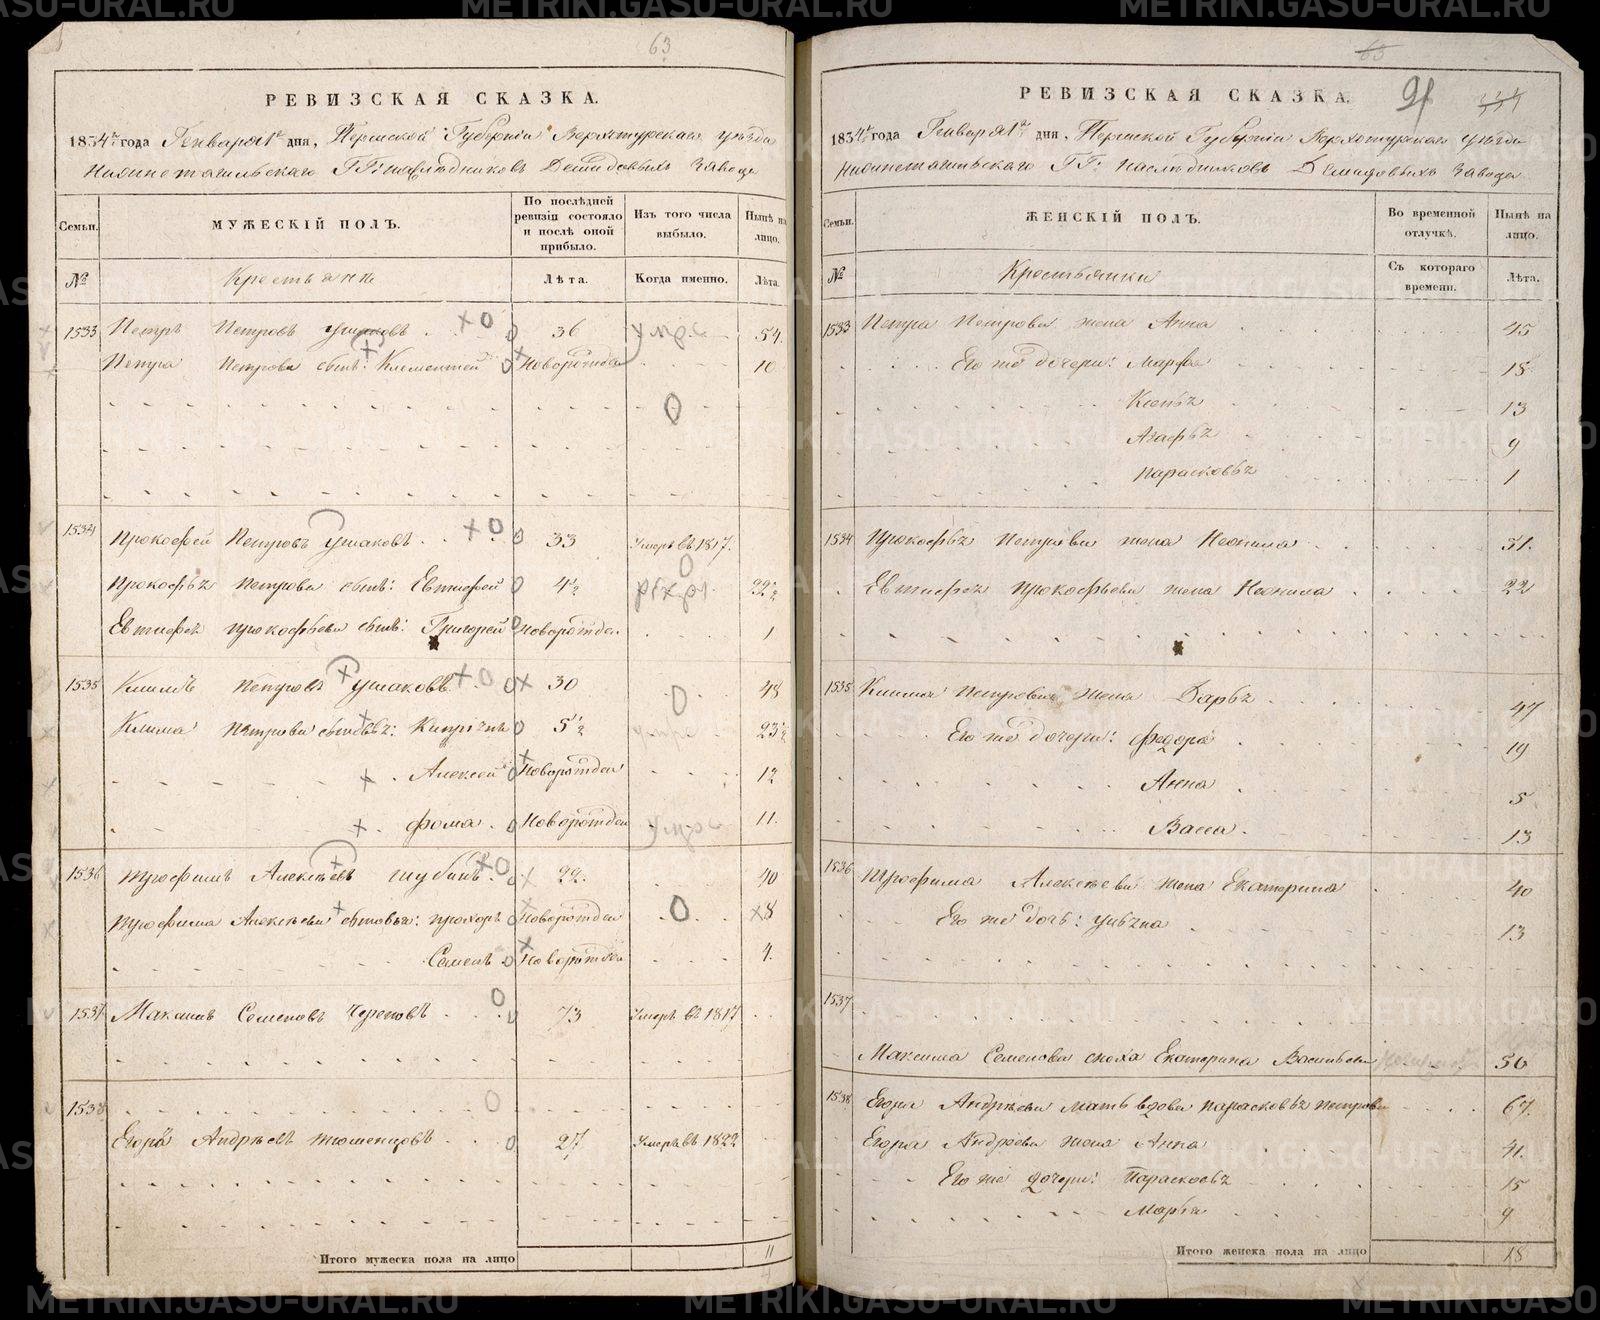 63
РЕВИЗСКАЯ СКАЗКА.
1834 года Генваря 1 дня, Пермской Губерніи Верхотурскаго уѣзда
Нижнетагильскаго ГГ: наслѣдниковъ Демидовыхъ завода
Семьи.
МУЖЕСКІЙ ПОЛЪ.
По послѣдней ревизіи состояло и послѣ оной прибыло.
Изъ того числа выбыло.
Нынѣ на лицо.
№
Крестьяне
Лѣта.
Когда именно.
Лѣта.
1533 Петръ Петровъ Ушаковъ 36 54.
Петра Петрова сынъ: Климентей Новорожден 10
1534 Прокофей Петровъ Ушаковъ 33 Умеръ въ 1817.
Прокофья Петрова сынъ: Евтифей 4½ 22½
Евтифея Прокофьева сынъ: Григорей Новорожден 1
1535 Климъ Петровъ Ушаковъ 30 48
Клима Петрова сыновья: 5½ 23½
Алексей Новорожден 12
Фома Новорожден 11.
1536 Трофимъ Алексѣевъ Шубинъ 22. 40
Трофима Алексѣева сыновья: Прохоръ Новорожден 8
Семенъ Новорожден 4.
1537 Максимъ Семеновъ Череповъ 73 Умеръ въ 1817
1538
Егоръ Андрѣевъ Тюменцовъ 27 Умеръ въ 1822
Итого мужеска пола на лицо 11
65
РЕВИЗСКАЯ СКАЗКА.
91
1834 года Генваря 1 дня, Пермской Губерніи Верхотурскаго уѣзда
Нижнетагильскаго ГГ: наслѣдниковъ Демидовыхъ завода
Семьи.
ЖЕНСКІЙ ПОЛЪ.
Во временной отлучкѣ.
Нынѣ на лицо.
№
Крестьянки
Съ котораго времени.
Лѣта.
1533 Петра Петрова жена Анна 45
Его же дочери: Марфа 18
13
Агафья 9
Парасковья 1
1534 Прокофья Петрова жена Неонила 51.
Евтифея Прокофьева жена Неонила 22
1535 Клима Петрова жена Дарья 47
Его же дочери: Федора 19
Анна 5
Васса 13
1536 Трофима Алексѣева жена Екатерина 40
Его же дочь: Ульяна 13
1537
Максима Семенова сноха Екатерина Васильева 56
1538 Егора Андрѣева мать вдова Парасковья Петрова 67.
Егора Андрѣева жена Анна 41.
Его же дочери: Парасковья 15
Марья 9
Итого женска пола на лицо 18
METRIKI.GASO-URAL.RU